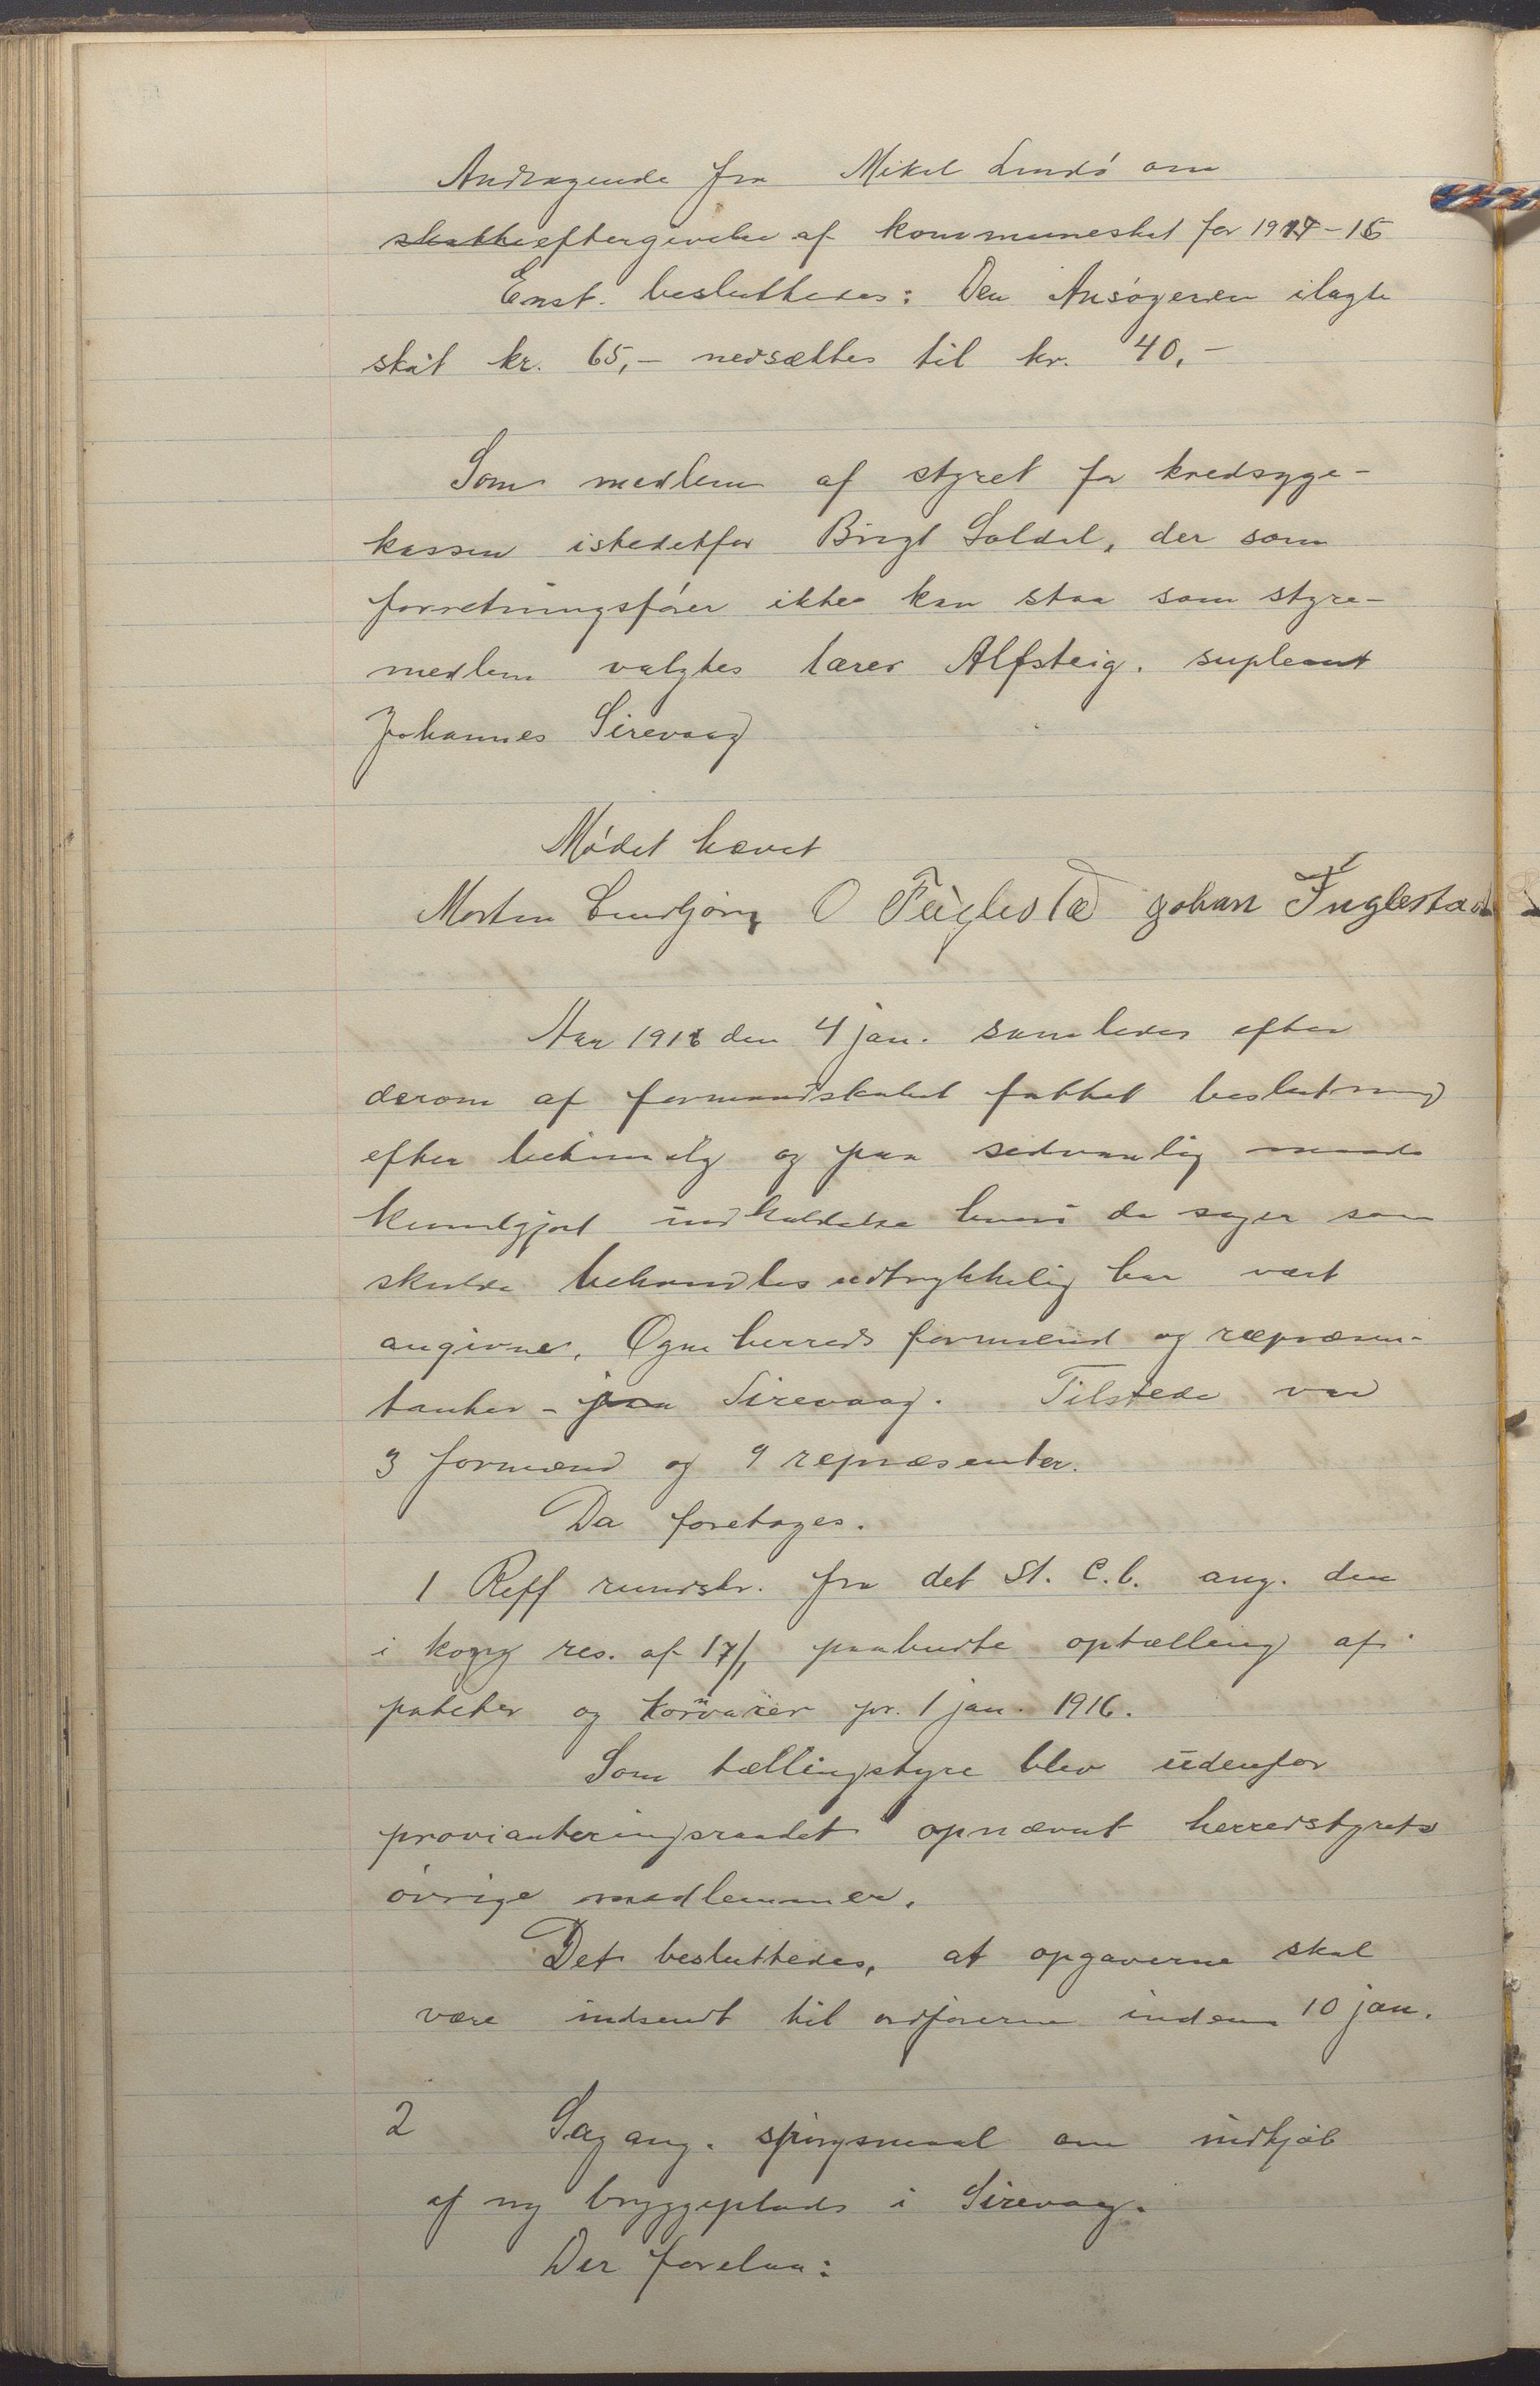 Andragende fra Mikel Lindö om
skatteeftergivelse af kommuneskat for 1914-15
Enst. besluttedes: Den Ansøgeren ilagte
skat kr. 65,- nedsættes til kr. 40,-
Som medlem af styret for kredssyge-
kassen istedetfor Bingt Saldal, der som
forretningsfører ikke kan staa som styre-
medlem valgtes lærer Alfsteig. supleant
Johannes Sirevaag
Mödet hævet
Morten O Fuglestad Johan Fuglestad
Aar 1916 den 4 jan. samledes efter
derom af formandskabet fattet beslutning
efter betimelig og paa sedvanlig maade
kundgjort indkaldelse hvori de sager som
skulde behandles udtrykkelig har vært
angivne, Ogne herreds formænd og repræsen-
tanter - paa Sirevaag. Tilstede var
3 formænd og 9 repræsenter.
Da foretages.
1 Reff rundskr. fra det St. C.b. ang. den
i kogrg res. af 17/1 paabudte optælling af
poteter og kornvarer pr. 1 jan. 1916.
Som tællingstyre blev udenfor
provianteringsraadet opnævnt herredstyrets
övrige medlemmer.
Det besluttedes, at opgaverne skal
være indsendt til ordföreren inden 10 jan.
2 Sag ang. spörgsmaal om indkjöb
af ny bryggeplads i Sirevaag.
Der forelaa: